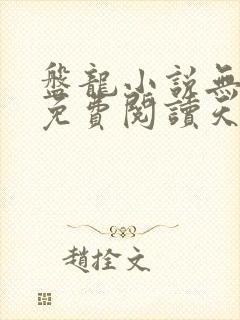 盤龍小說無
免費閱讀天
趙拴文